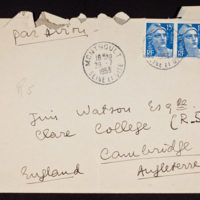 par avion
MONTROUGE
1953
Jim Watson Esqre
Clare College (R.S
Cambridge
England Angleterre